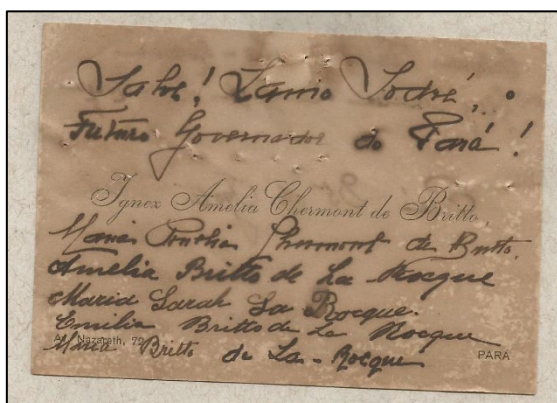 Salve! Lauro Sodré,
Futuro Governador do Pará!
Ignez Amelia Chermont de Britto,
Maria Chermont de Britto,
Amelia Britto de La Rocque
Maria Sarah La Rocque.
Emilia Britto de La Rocque
Av. Nazareth, 72
Britto de La-Rocque
PARÁ